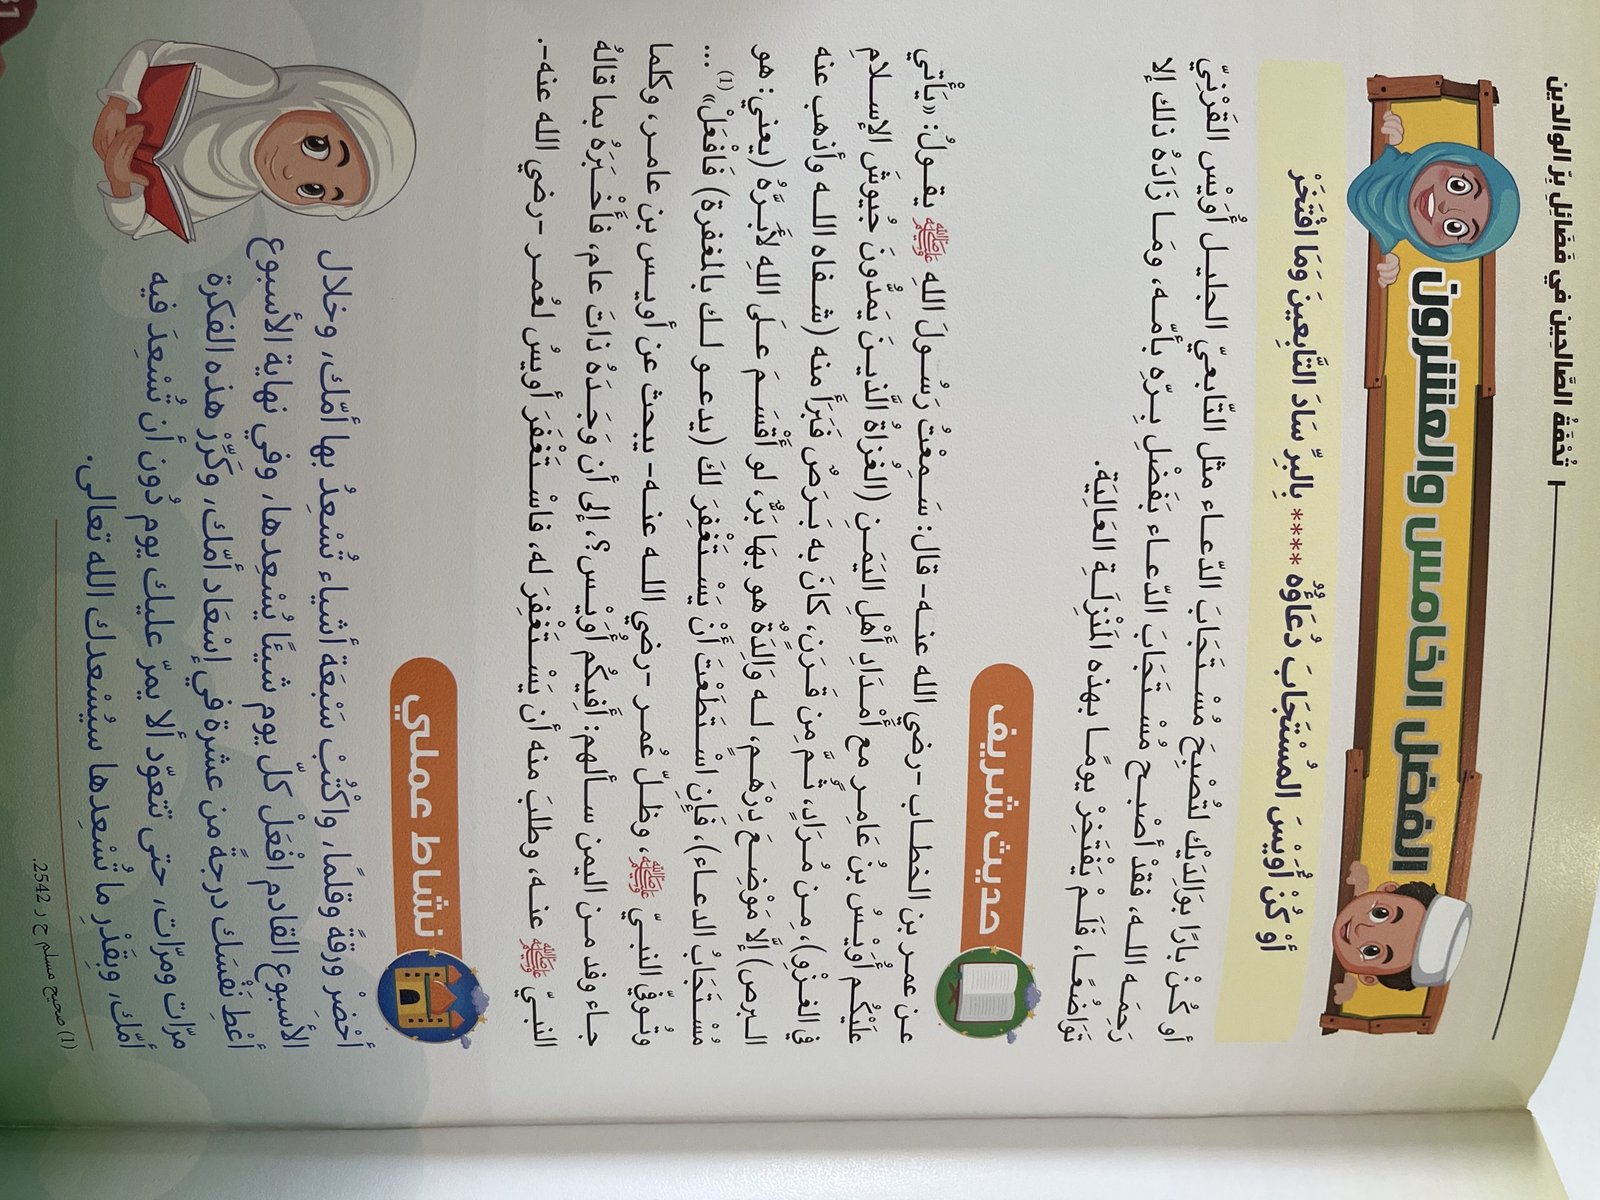 تُحْفَةُ الصَّالِحِين فِي فَضَائِلِ بِرّ الوالدين
الفضل الخامس والعشرون
أَوْ كُنْ أُوَيْسَ المُسْتَجَابَ دُعَاؤُه **** بِالبِرِّ سَادَ التَّابِعِينَ وَمَا افْتَخَرْ
أو كُـنْ بارًا بوَالدَيْكَ لتُصْبِحَ مُسْـتَجَابَ الدّعـاء مثل التّابعـيّ الجليـل أُوَيْس القَرْنِيّ
رَحِمَـه اللـه، فقدْ أصْبـح مُسْـتَجَابَ الدّعـاء بفَضْلِ بـرّهِ بأمّـه، ومَـا زَادَهُ ذلك إلا
تَوَاضُعًـا، فَلَـمْ يَفْتَخِرْ يومًـا بهذه المَنْزلَـةِ العَاليَة.
حديث شريف
عـن عمـر بن الخطـاب -رضيَ الله عنـه- قال: سَـمِعْتُ رَسُـولَ اللهِ ﷺ يقـولُ: «يَأْتِي
عَلَيْكُـم أُوَيْـسُ بْنُ عَامِـرٍ مع أَمْـدَادِ أَهْلِ اليَمَـنِ (الغُزاةُ الَّذيـنَ يَمدُّونَ جُيوشَ الإسـلامِ
في الغـزْوِ)، مِـن مُـرَادٍ، ثُـمَّ مِن قَـرَن، كانَ به بَـرَصٌ فَبَرَأَ منه (شـفاه اللـه وأذهب عنه
الـبرص) إلَّا مَوْضِـعَ دِرْهَـمٍ، لـه وَالِدَةٌ هو بهَا بَرٌّ، لو أَقْسَـمَ عـلَى اللهِ لأَبَـرَّهُ (يعني: هو
مُسْـتَجَابُ الدعـاء)، فَإنِ اسْـتَطَعْتَ أَنْ يَسْـتَغْفِرَ لكَ (يدعـو لـك بالمغفرة) فَافْعَلْ» (1) ...
وتُـوفّيَ النبـيّ ﷺ، وظـلّ عُمـر -رضي اللـه عنـه- يبحث عن أويـس بن عامـر، وكلما
جـاء وفد مـن اليمن سـألهم: أَفِيكُـم أُوَيْـس؟، إلى أن وَجَـدَهُ ذاتَ عام، فأخْـبَرَهُ بما قالهُ
النبـيّ ﷺ عنـه، وطلبَ منه أن يَسْـتَغْفِرَ له، فاسْـتَغْفَرَ أويسُ لعُمـر -رضي الله عنه-.
نشاط عملي
أحْضِرْ ورقةً وقلمًا، واكْتُبْ سَبْعَة أشياء تُسْعِدُ بها أمّك، وخلال
الأسبوع القادم افْعَلْ كلّ يوم شيئًا يُسْعِدها، وفي نهاية الأسبوع
أعْطِ نَفْسَك درجةً من عشرة في إسْعَاد أمّك، وكَرِّرْ هذه الفكرة
مرّات ومرّات، حتى تتعوّد ألا يمرّ عليك يوم دُون أن تُسْعِدَ فيه
أمّك، وبِقَدْرِ ما تُسْعِدها سيُسْعدك الله تعالى.
(1) صحيح مسلم ح ر 2542.